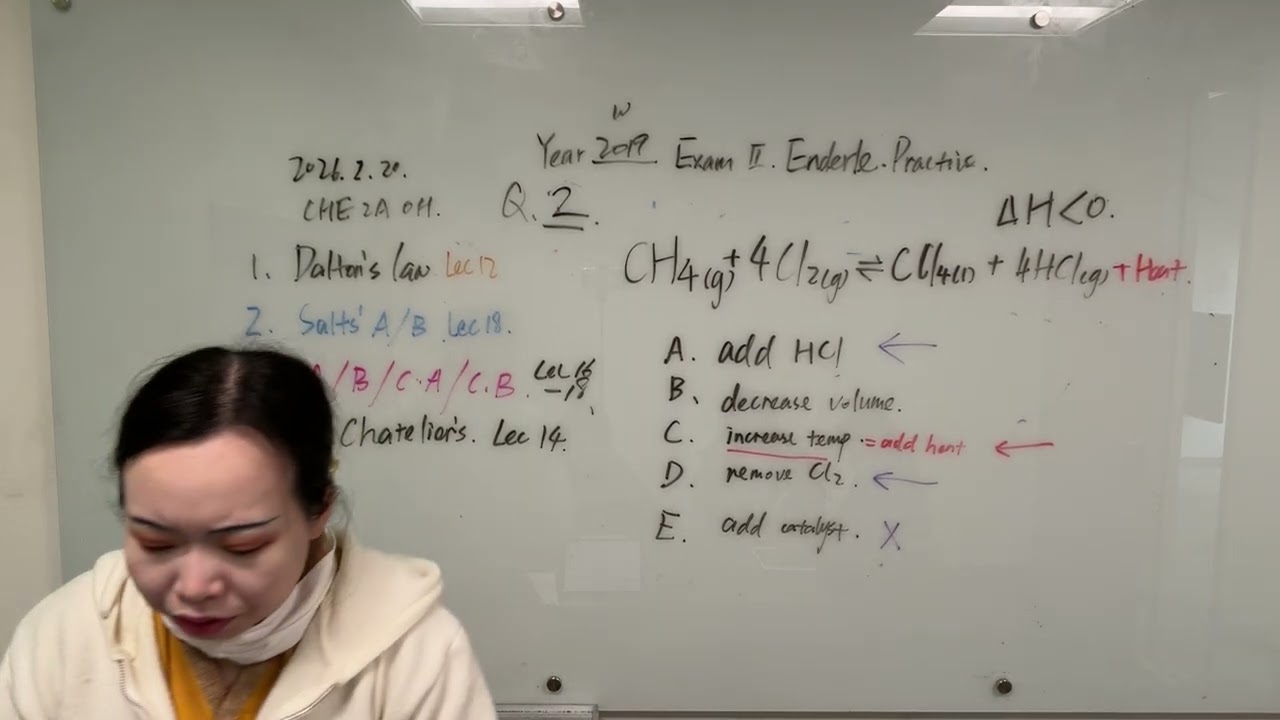 2026.2.20.
CHE 2A OH.
1. Dalton's law Lec 12
2. Salts' A/B Lec 18.
/B/C.A/C.B. Lec 16
-18
Chatelier's. Lec 14.
W
Year 2019 Exam II. Enderle. Practice.
Q. 2.
ΔH<0.
CH4(g) + 4Cl2(g) ⇌ CCl4(l) + 4HCl(g) + Heat.
A. add HCl ←
B. decrease volume.
C. increase temp. = add heat ←
D. remove Cl2. ←
E. add catalyst. X